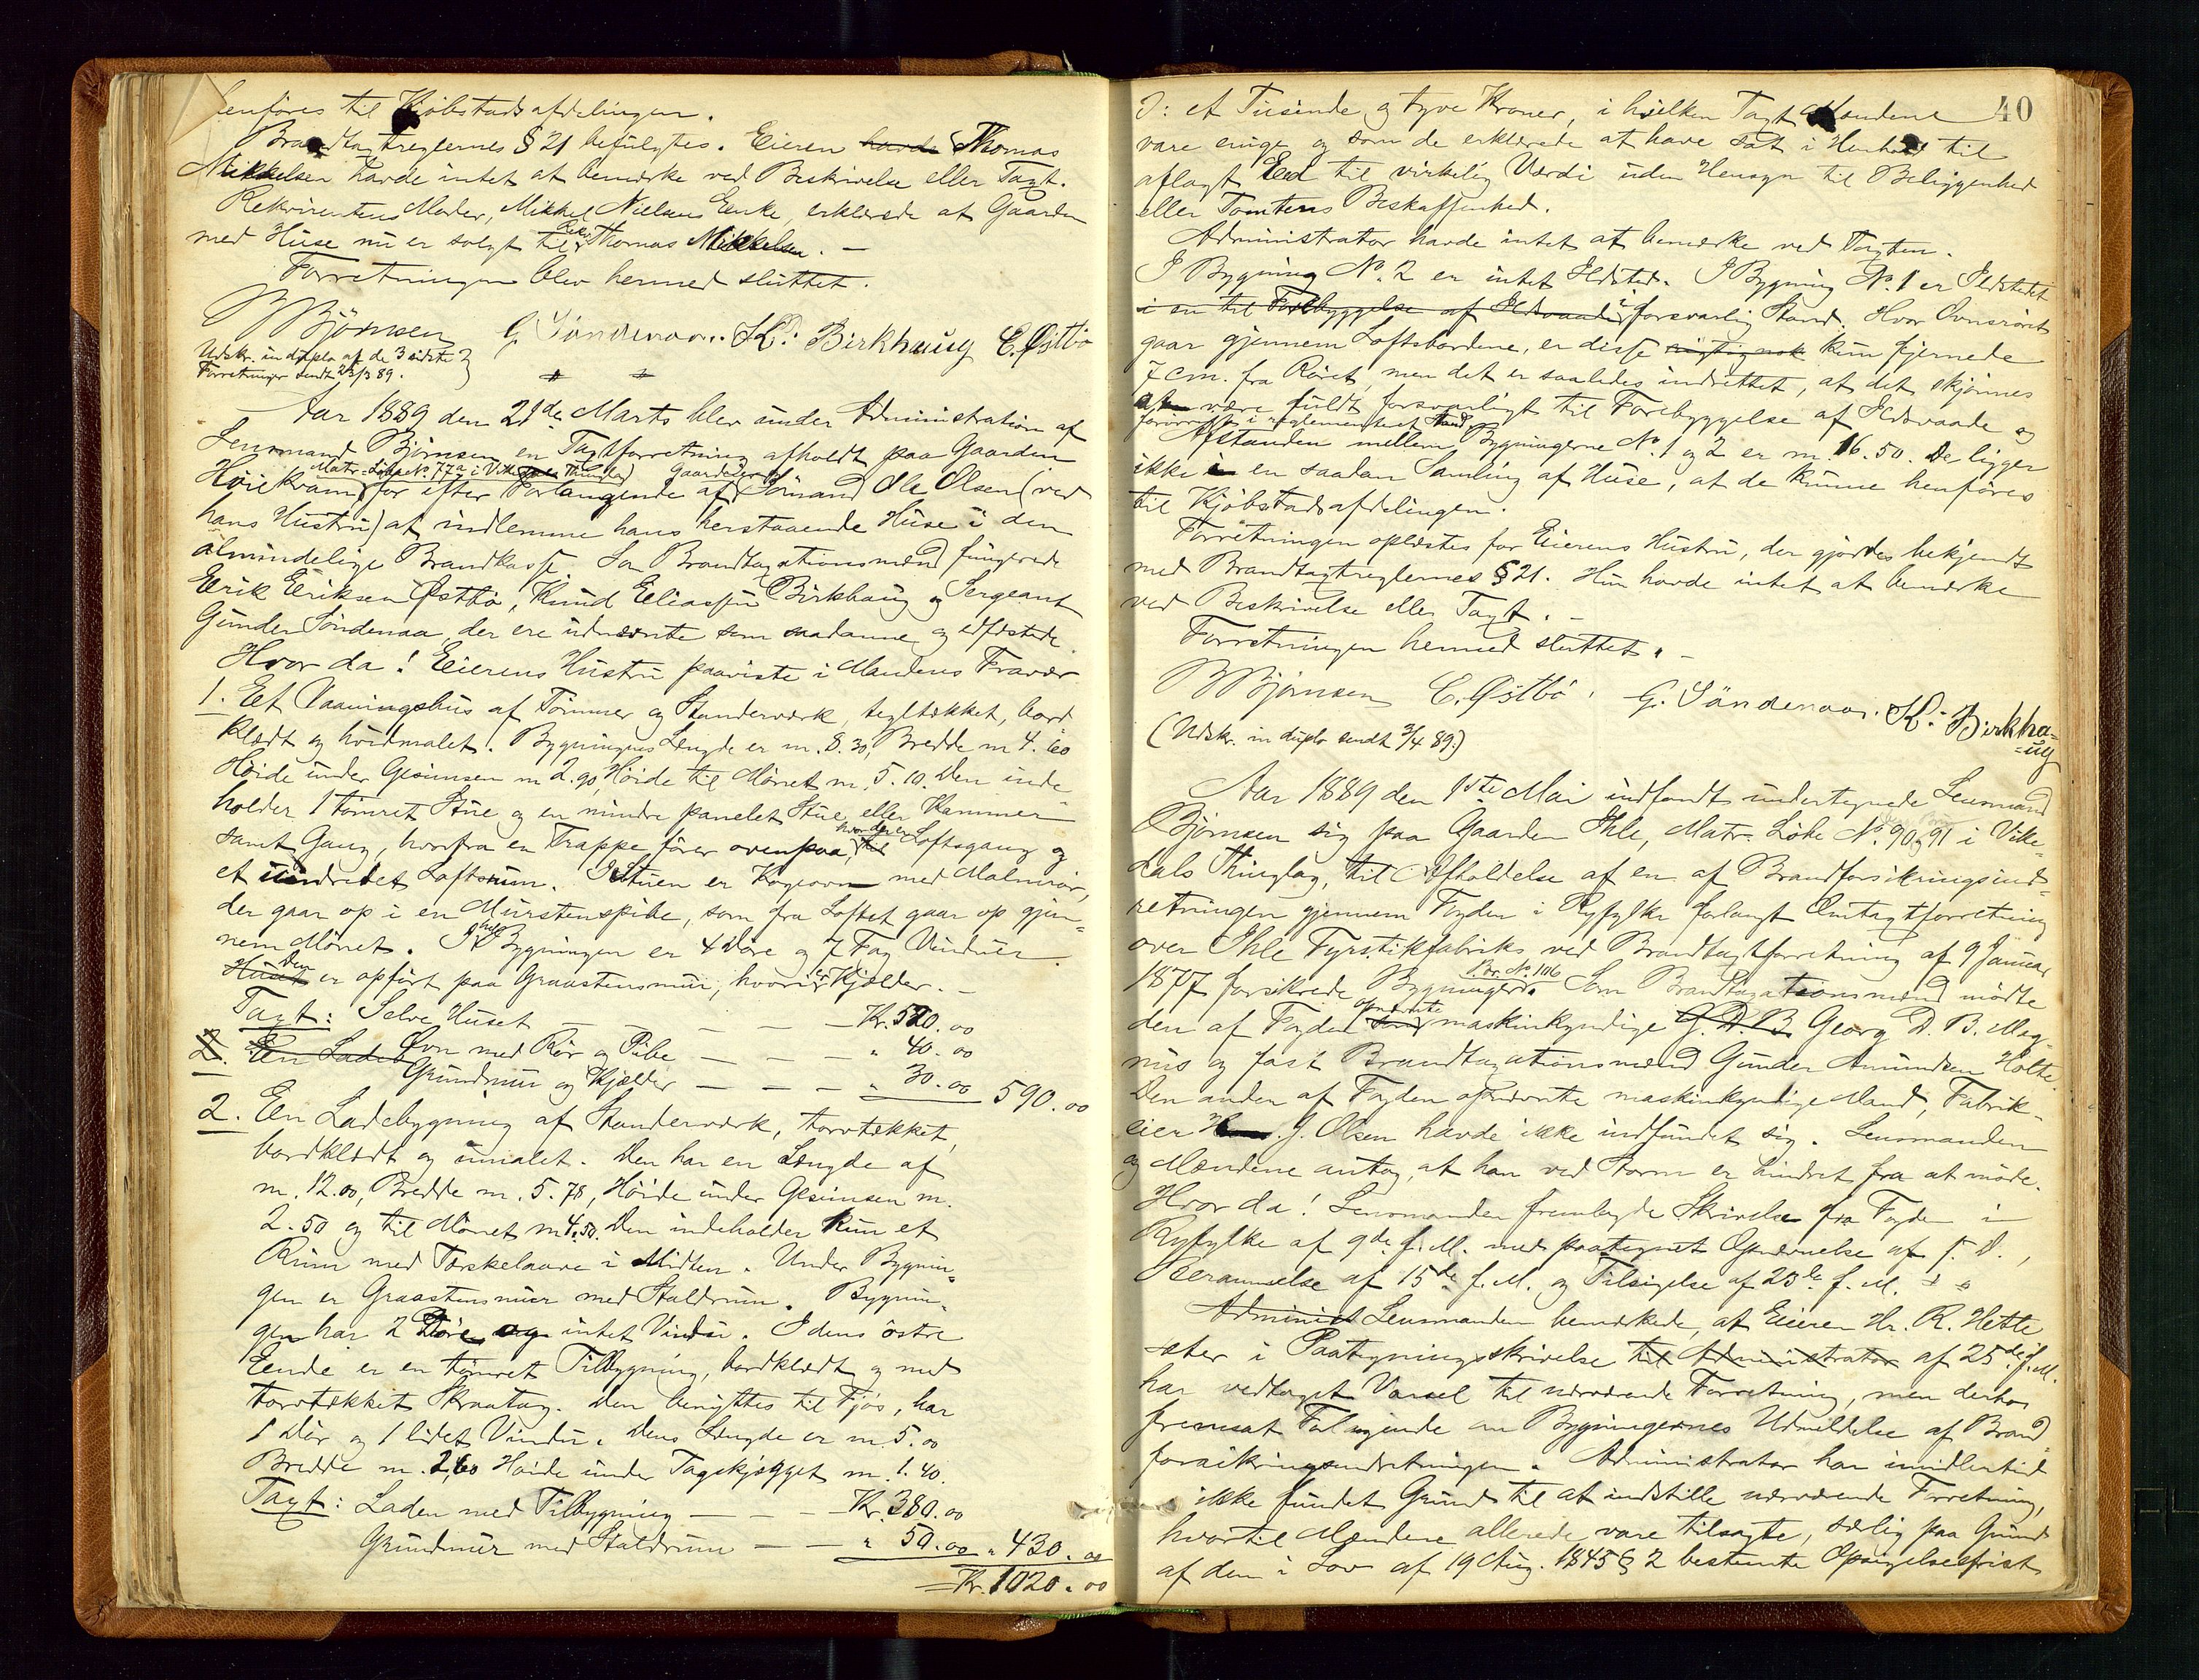 henføres til Kjøbstadsafdelingen.
Brandtaxtreglernes § 21 befulgtes. Eieren havde Thomas
Mikkelsen havde intet at bemærke ved Beskrivelse eller Taxt.
Rekvirentens Moder, Mikkel Nielsens Enke, erklærede at Gaarden
med Huse nu er solgt til Rekv. Thomas Mikkelsen. —
Forretningen blev hermed sluttet.
B Bjørnsen G. Søndenaa. K. Birkhaug E. Østbø
Udskr. in duplo af de 3 sidste
Forretninger sendt 23/3 89.
Aar 1889 den 21de Marts blev under Administration af
Lensmand Bjørnsen en Taxtforretning afholdt paa Gaarden
Matr. Løbe No. 77a i Vikedals Thinglag Gaardeier
Høiekvam for efter Forlangende af Sømand Ole Olsen (ved
hans Hustru) at indlemme hans herstaaende Huse i den
almindelige Brandkasse. Som Brandtaxationsmænd fungerede
Eerik Eeriksen Østbø, Knud Eliassen Birkhaug og Sergeant
Gunder Søndenaa, der ere udnævnte som saadanne og edfæstede.
Hvor da! Eierens Hustru paaviste i Mandens Fravær
1. Eet Vaaningshus af Tømmer og Standerværk, tegltækket, bord
klædt og hvidmalet. Bygningens Længde er m. 8.30, Bredde m 4.60
Høide under Gesimsen m 2.90, Høide til Mønet m. 5.10. Den inde-
holder 1 tømret Stue og en mindre panelet Stue eller Kammer
samt Gang, hvorfra en Trappe fører ovenpaa, hvor der er til Loftsgang og
et uindredet Loftsrum. I Stuen er Kogeovn med Malmrør,
der gaar op i en Murstenspibe, som fra Loftet gaar op gjen-
nem Mønet. I hele Bygningen er 4 Døre og 7 Fag Vinduer.
Huset Den er opført paa Graastensmur, hvori er Kjelder. —
Taxt: Selve Huset — — — — Kr. 520.00
2. Een Ladeb Ovn med Rør og Pibe — — — " 40.00
Grundmur og Kjelder — — — " 30.00 590.00
2. Een Ladebygning af Standerværk, torvtækket,
bordklædt og umalet. Den har en Længde af
m. 12.00, Bredde m. 5.78, Høide under Gesimsen m.
2.50 og til Mønet m 4.50. Den indeholder kun et
Rum med Tærskelaave i Midten. Under Bygnin-
gen er Graastensmur med Staldrum. Bygnin-
gen har 2 Døre og intet Vindu. I dens østre
Eende er en tømret Tilbygning, bordklædt og med
torvtækket Skraatag. Den benyttes til Fjøs, har
1 Dør og 1 lidet Vindu. Dens Længde er m. 5.00
Bredde m. 2,60 Høide under Tagskjægget m. 1.40.
Taxt: Laden med Tilbygning — — — Kr. 380.00
Grundmur med Staldrum — — " 50.00 " 430.00
Kr. 1020.00
40
ɔ: et Tusinde og tyve Kroner, i hvilken Taxt Mændene
vare enige og som de erklærede at have sat i Henhold til
aflagt Eed til virkelig Værdi uden Hensyn til Beliggenhed
eller Tomtens Beskaffenhed.
Administrator havde intet at bemærke ved Taxten.
I Bygning No. 2 er intet Ildsted. I Bygning No. 1 er Ildstedet
i en til Forebyggelse af Ildsvaade i forsvarlig Stand. Hvor Ovnsrøret
gaar gjennem Loftsbordene, er disse rigtignok kun fjernede
7 cm. fra Røret, men det er saaledes indrettet, at det skjønnes
at være fuldt forsvarligt til Forebyggelse af Ildsvaade og
forøvrigt i reglementeret Stand.
Afstanden mellem Bygningerne No. 1 og 2 er m. 16.50. De ligger
ikke i en saadan Samling af Huse, at de kunne henføres
til Kjøbstadsafdelingen.
Forretningen oplæstes for Eierens Hustru, der gjordes bekjendt
med Brandtaxtreglernes § 21. Hun havde intet at bemærke
ved Beskrivelse eller Taxt. —
Forretningen hermed sluttet. —
B Bjørnsen E. Østbø. G. Søndenaa. K. Birkha-
-ug
(Udskr. in duplo sendt 3/4 89.)
Aar 1889 den 1ste Mai indfandt undertegnede Lensmand
Bjørnsen sig paa Gaarden Ihle, Matr. Løbe No. 90 og 91 i Vike-
dals Thinglag, til Afholdelse af en af Brandforsikringsind-
retningen gjennem Fogden i Ryfylke forlangt Omtaxtforretning
over Ihle Fyrstikfabriks ved Brandtaxtforretning af 9 Januar
1877 forsikrede Bygninger Br. No. 106. Som Brandtaxationsmænd mødte
den af Fogden som opnævnte maskinkyndige G. D. B. Georg D. B. Mag-
nus og fast Brandtaxationsmænd Gunder Amundsen Holte.
Den anden af Fogden opnævnte maskinkyndige Mand, Fabrik-
eier J. Olsen havde ikke indfundet sig. Lensmanden
og Mændene antog, at han ved Storm er hindret fra at møde.
Hvor da! Lensmanden fremlagde Skrivelse fra Fogden i
Ryfylke af 9de f. M. med paategnet Opnævnelse af s. D.,
Berammelse af 15de f. M. og Tilsigelse af 23de f. M.
Administ Lensmanden bemærkede, at Eieren Hr. R. Hette
sæter i Paategningsskrivelse til Administrator af 25de f. M.
har vedtaget Varsel til nærværende Forretning, men derhos
fremsat Forlangende om Bygningernes Udmeldelse af Brand-
forsikringsindretningen. Administrator har imidlertid
ikke fundet Grund til at indstille nærværende Forretning,
hvortil Mændene allerede vare tilsagte, særlig paa Grund
af den i Lov af 19 Aug. 1845 § 2 bestemte Opsigelsesfrist